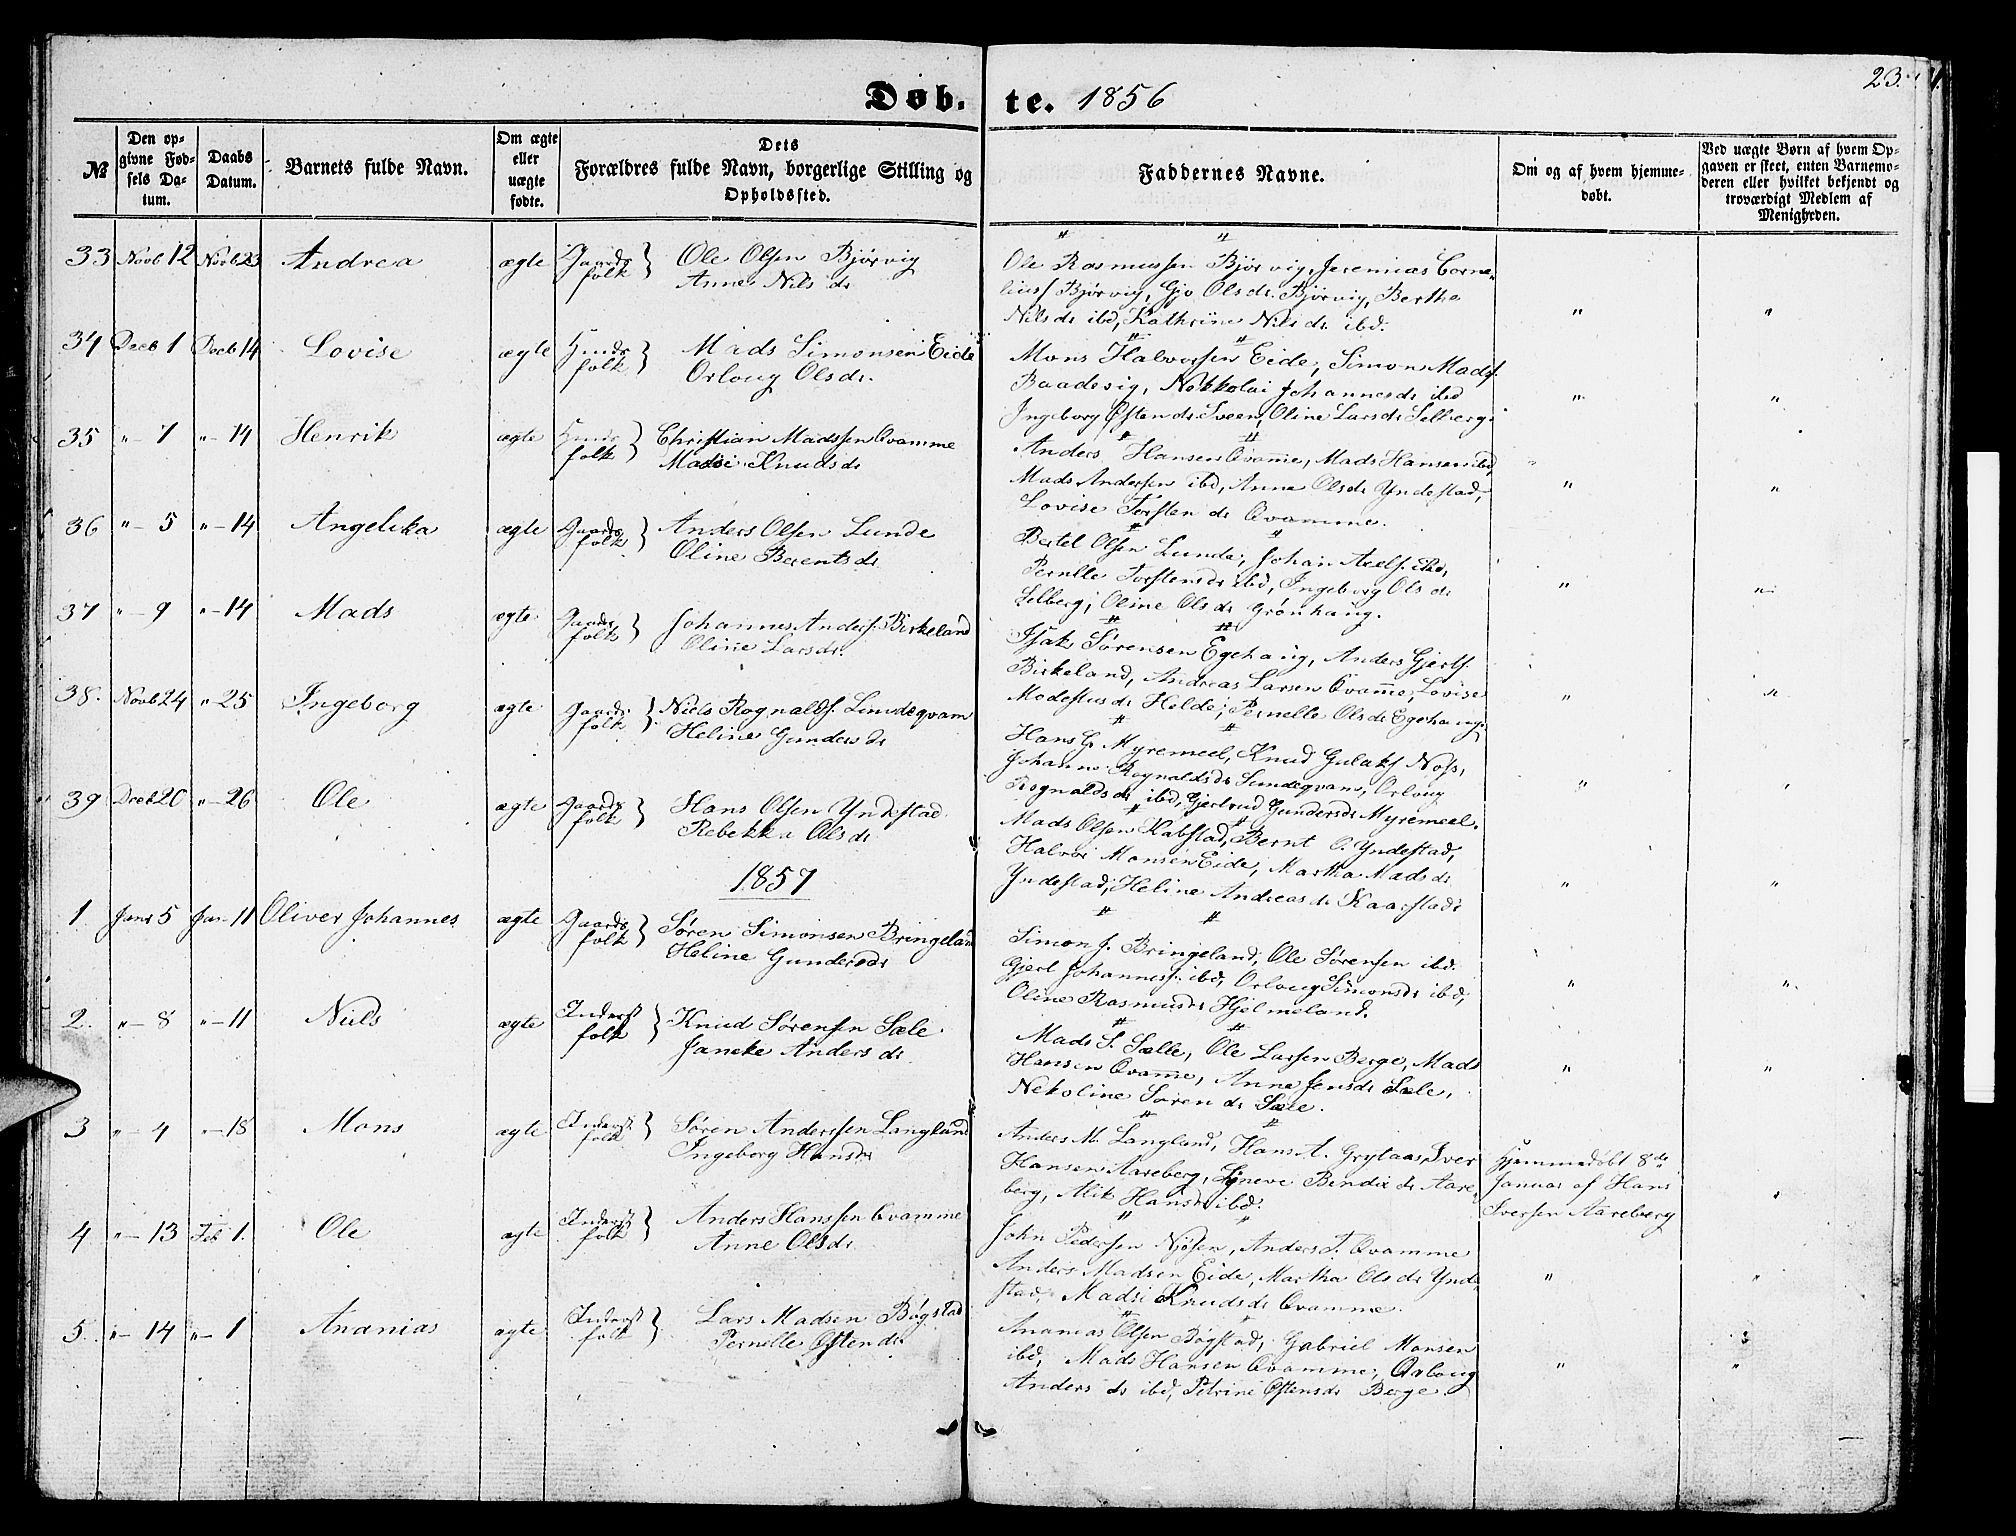 23.
Døb- te. 1856
№
Den opgivne Fødsels Datum.
Daabs Datum.
Barnets fulde Navn.
Om ægte eller uægte fødte.
Dets Forældres fulde Navn, borgerlige Stilling og Opholdssted.
Faddernes Navne.
Om og af hvem hjemmedøbt.
Ved uægte Børn af hvem Opgaven er skeet, enten Barnemoderen eller hvilket bekjendt og troværdigt Medlem af Menigheden.
33 Novb 12 Novb 23 Andrea ægte Gaardsfolk } Ole Olsen Bjørvig
Anne Nilsdr
Ole Rasmussen Bjørvig, Jeremias Corne-
liusf Bjørvig, Gjo Olsdr. Bjørvig, Berthe
Nilsdr ibd, Kathrine Nilsdr ibd. " "
34 Decb 1 Decb 14 Lovise ægte Huusfolk } Mads Simonsen Eide
Orloug Olsdr.
Mons Halvorsen Eide, Simon Madsf.
Baadevig, Nikkolai Johannesdr ibd
Ingeborg Østendr. Sveen, Oline Larsdr Selberg. " "
35 " 7 " 14 Henrik ægte Huusfolk } Christian Madssen Qvamme
Madsi Knudsdr
Anders Hansen Qvamme, Mads Hansen ibd,
Mads Andersen ibd, Anne Olsdr Yndestad,
Lovise Torstendr Qvamme. " "
36 " 5 " 14 Angelika ægte Gaardsfolk } Anders Olsen Lunde
Oline Berentsdr
Bertel Olsen Lunde, Johan Axelf. ibd,
Pernille Torstensdr ibd, Ingeborg Olsdr
Selberg, Oline Olsdr Grønhaug. " "
37 " 9 " 14 Mads ægte Gaardsfolk } Johannes Andersf. Birkeland
Oline Larsdr.
Isak Sørensen Egehaug, Anders Gjertf.
Birkeland, Andreas Larsen Qvamme, Lovise
Modestusdr Helde, Pernelle Olsdr Egehaug. " "
38. Novb 24 " 25 Ingeborg ægte Gaardsfolk } Niels Rognaldf. Sundeqvam
Heline Gundersdr
Hans G. Myremeel, Knud Gulakf Nofs,
Johanne Rognaldsdr Sundeqvam, Orloug
Rognaldsdr ibd, Gjertrud Gundersdr Myremeel. " "
39 Decb 20 " 26 Ole ægte Gaardsfolk } Hans Olsen Yndestad
Rebekka Olsdr
Mads Olsen Kabstad, Bernt O. Yndestad,
Halvor Monsen Eide, Martha Madsdr
Yndestad, Heline Andreasdr Kaarstad. " "
1857
1. Janr 5 Jan 11 Oliver Johannes ægte Gaardsfolk } Søren Simonsen Bringeland
Heline Gundersdr
Simon J. Bringeland, Ole Sørensen ibd.
Gjert Johannesf. ibd, Orloug Simonsdr ibd,
Oline Rasmusdr Hjelmeland. " "
2. " 8 " 11 Niels ægte Inderstfolk } Knud Sørensen Sæle.
Janeke Andersdr
Mads S. Sælle, Ole Larsen Berge, Mads
Hansen Qvamme, Anne Jensdr Sæle,
Nekoline Sørendr Sæle. " "
3 " 4 " 18 Mons ægte Inderstfolk } Søren Anderssen Langeland
Ingeborg Hansdr
Anders M. Langland, Hans A. Grytaas, Iver
Hansen Aareberg, Synneve Bendixdr Aare-
berg, Alit Hansdr ibd.
Hjemmedøbt 8de
Januar af Hans
Iversen Aareberg "
4 " 13 Feb 1. Ole ægte Inderstfolk } Anders Hanssen Qvamme
Anne Olsdr
John Pedersen Njøsen, Anders T. Qvamme
Anders Madsen Eide, Martha Olsdr Ynde-
stad, Madsi Knudsdr Qvamme. " "
5. " 14 " 1 Ananias ægte Inderstfolk } Lars Madsen Bøgstad
Pernille Østendr
Ananias Olsen Bøgstad, Gabriel Monsen
ibd, Mads Hansen Qvamme, Orloug
Andersdr ibd, Petrine Østensdr Berge. " "